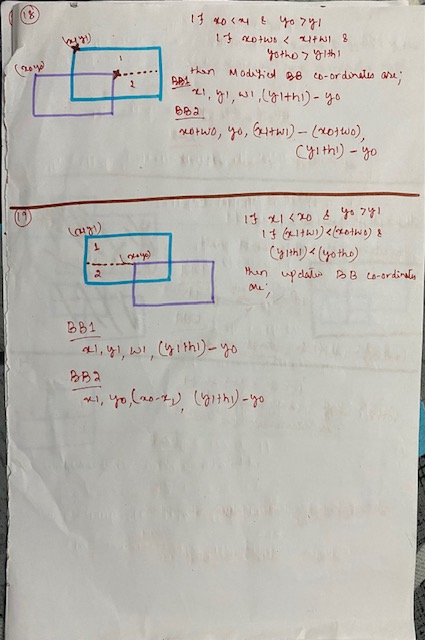 18
If x0 < x1 & y0 > y1
(x1y1)
If x0+w0 < x1+w1 &
y0+h0 > y1+h1
(x0y0)
1
2
then Modified BB co-ordinates are;
BB1
x1, y1, w1, (y1+h1) - y0
BB2
x0+w0, y0, (x1+w1) - (x0+w0),
(y1+h1) - y0
19
If x1 < x0 & y0 > y1
(x1y1)
If (x1+w1) < (x0+w0) &
1
(y1+h1) < (y0+h0)
2
(x0y0)
then update BB co-ordinates
are;
BB1
x1, y1, w1, (y1+h1) - y0
BB2
x1, y0, (x0-x1), (y1+h1) - y0